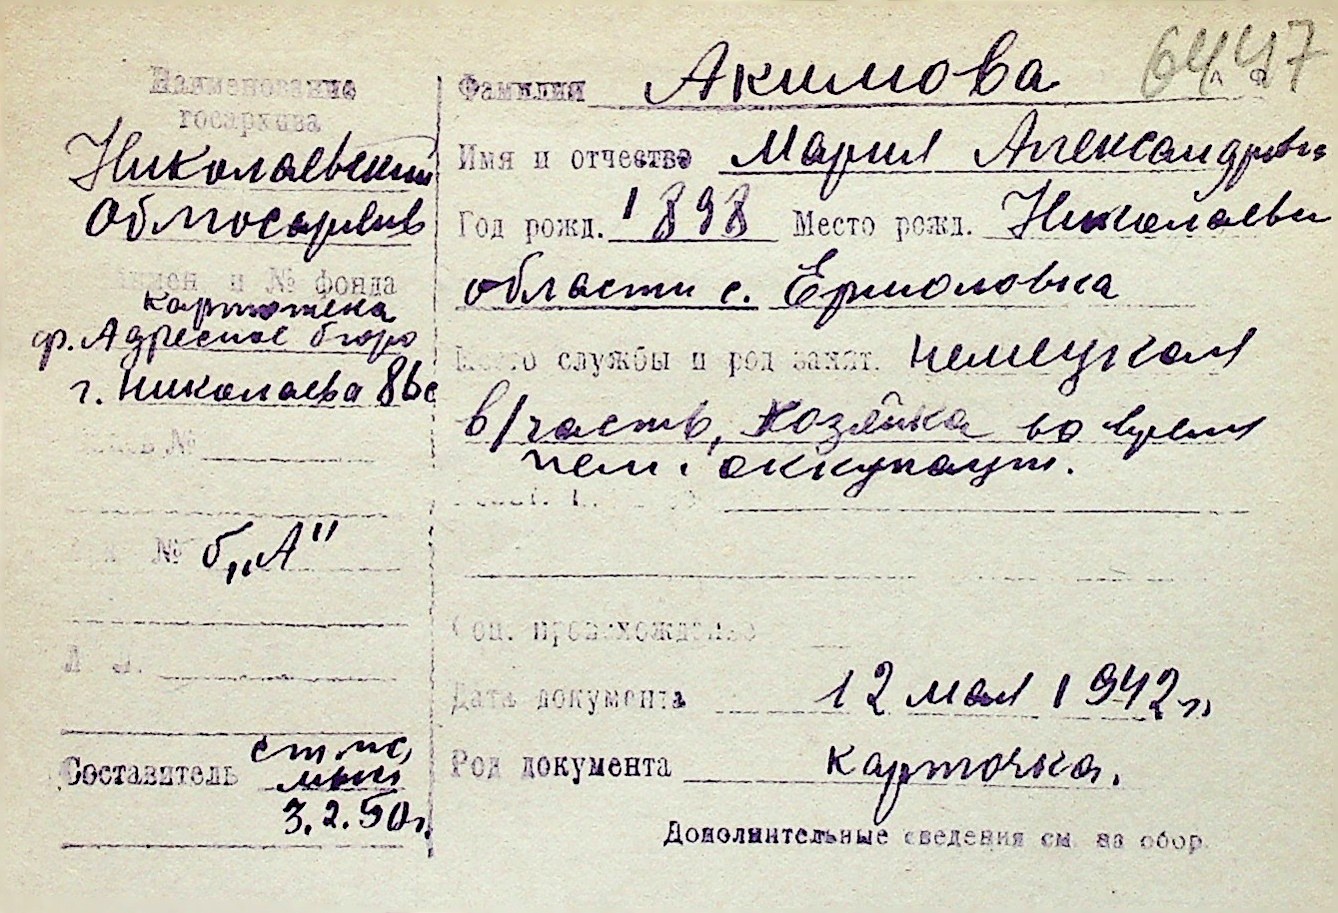 6447
Наименование
госархива
Николаевский
Облгосархив
и № фонда
картотека
ф. Адресное бюро
г. Николаева
№
№ б„А"
Составитель
3.2.50г.
Фамилия Акимова
Имя и отчество Мария Александровна
Год рожд. 1898 Место рожд.
области с. Ермоловка
Место службы и род занят. немецкая
в/часть, хозяйка во время
нем. оккупации.
Соц. происхождение
Дата документа 12 мая 1942г.
Род документа карточка.
Дополнительные сведения см. на обор.